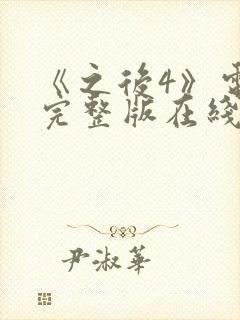 《之後4》
完整版在綫
尹淑華